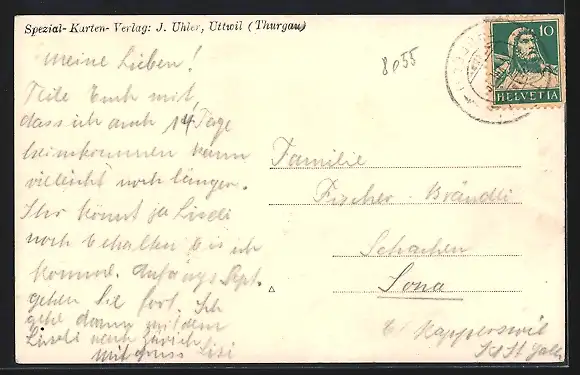 Spezial-Karten-Verlag: J. Uhler, Uttwil (Thurgau)
8055
10
HELVETIA
Meine Lieben!
Teile Euch mit,
dass ich auch 14 Tage
heimkommen kann
vielleicht noch länger.
Ihr könnt ja Liseli
noch behalten bis ich
komme. Anfangs Sept.
gehen Sie fort. Ich
gehe dann mit dem
Liseli nach Zürich
mit Gruss Lisi
Familie
Fischer-Brändli
Schachen
Jona
b/ Rapperswil
Kt St Gall